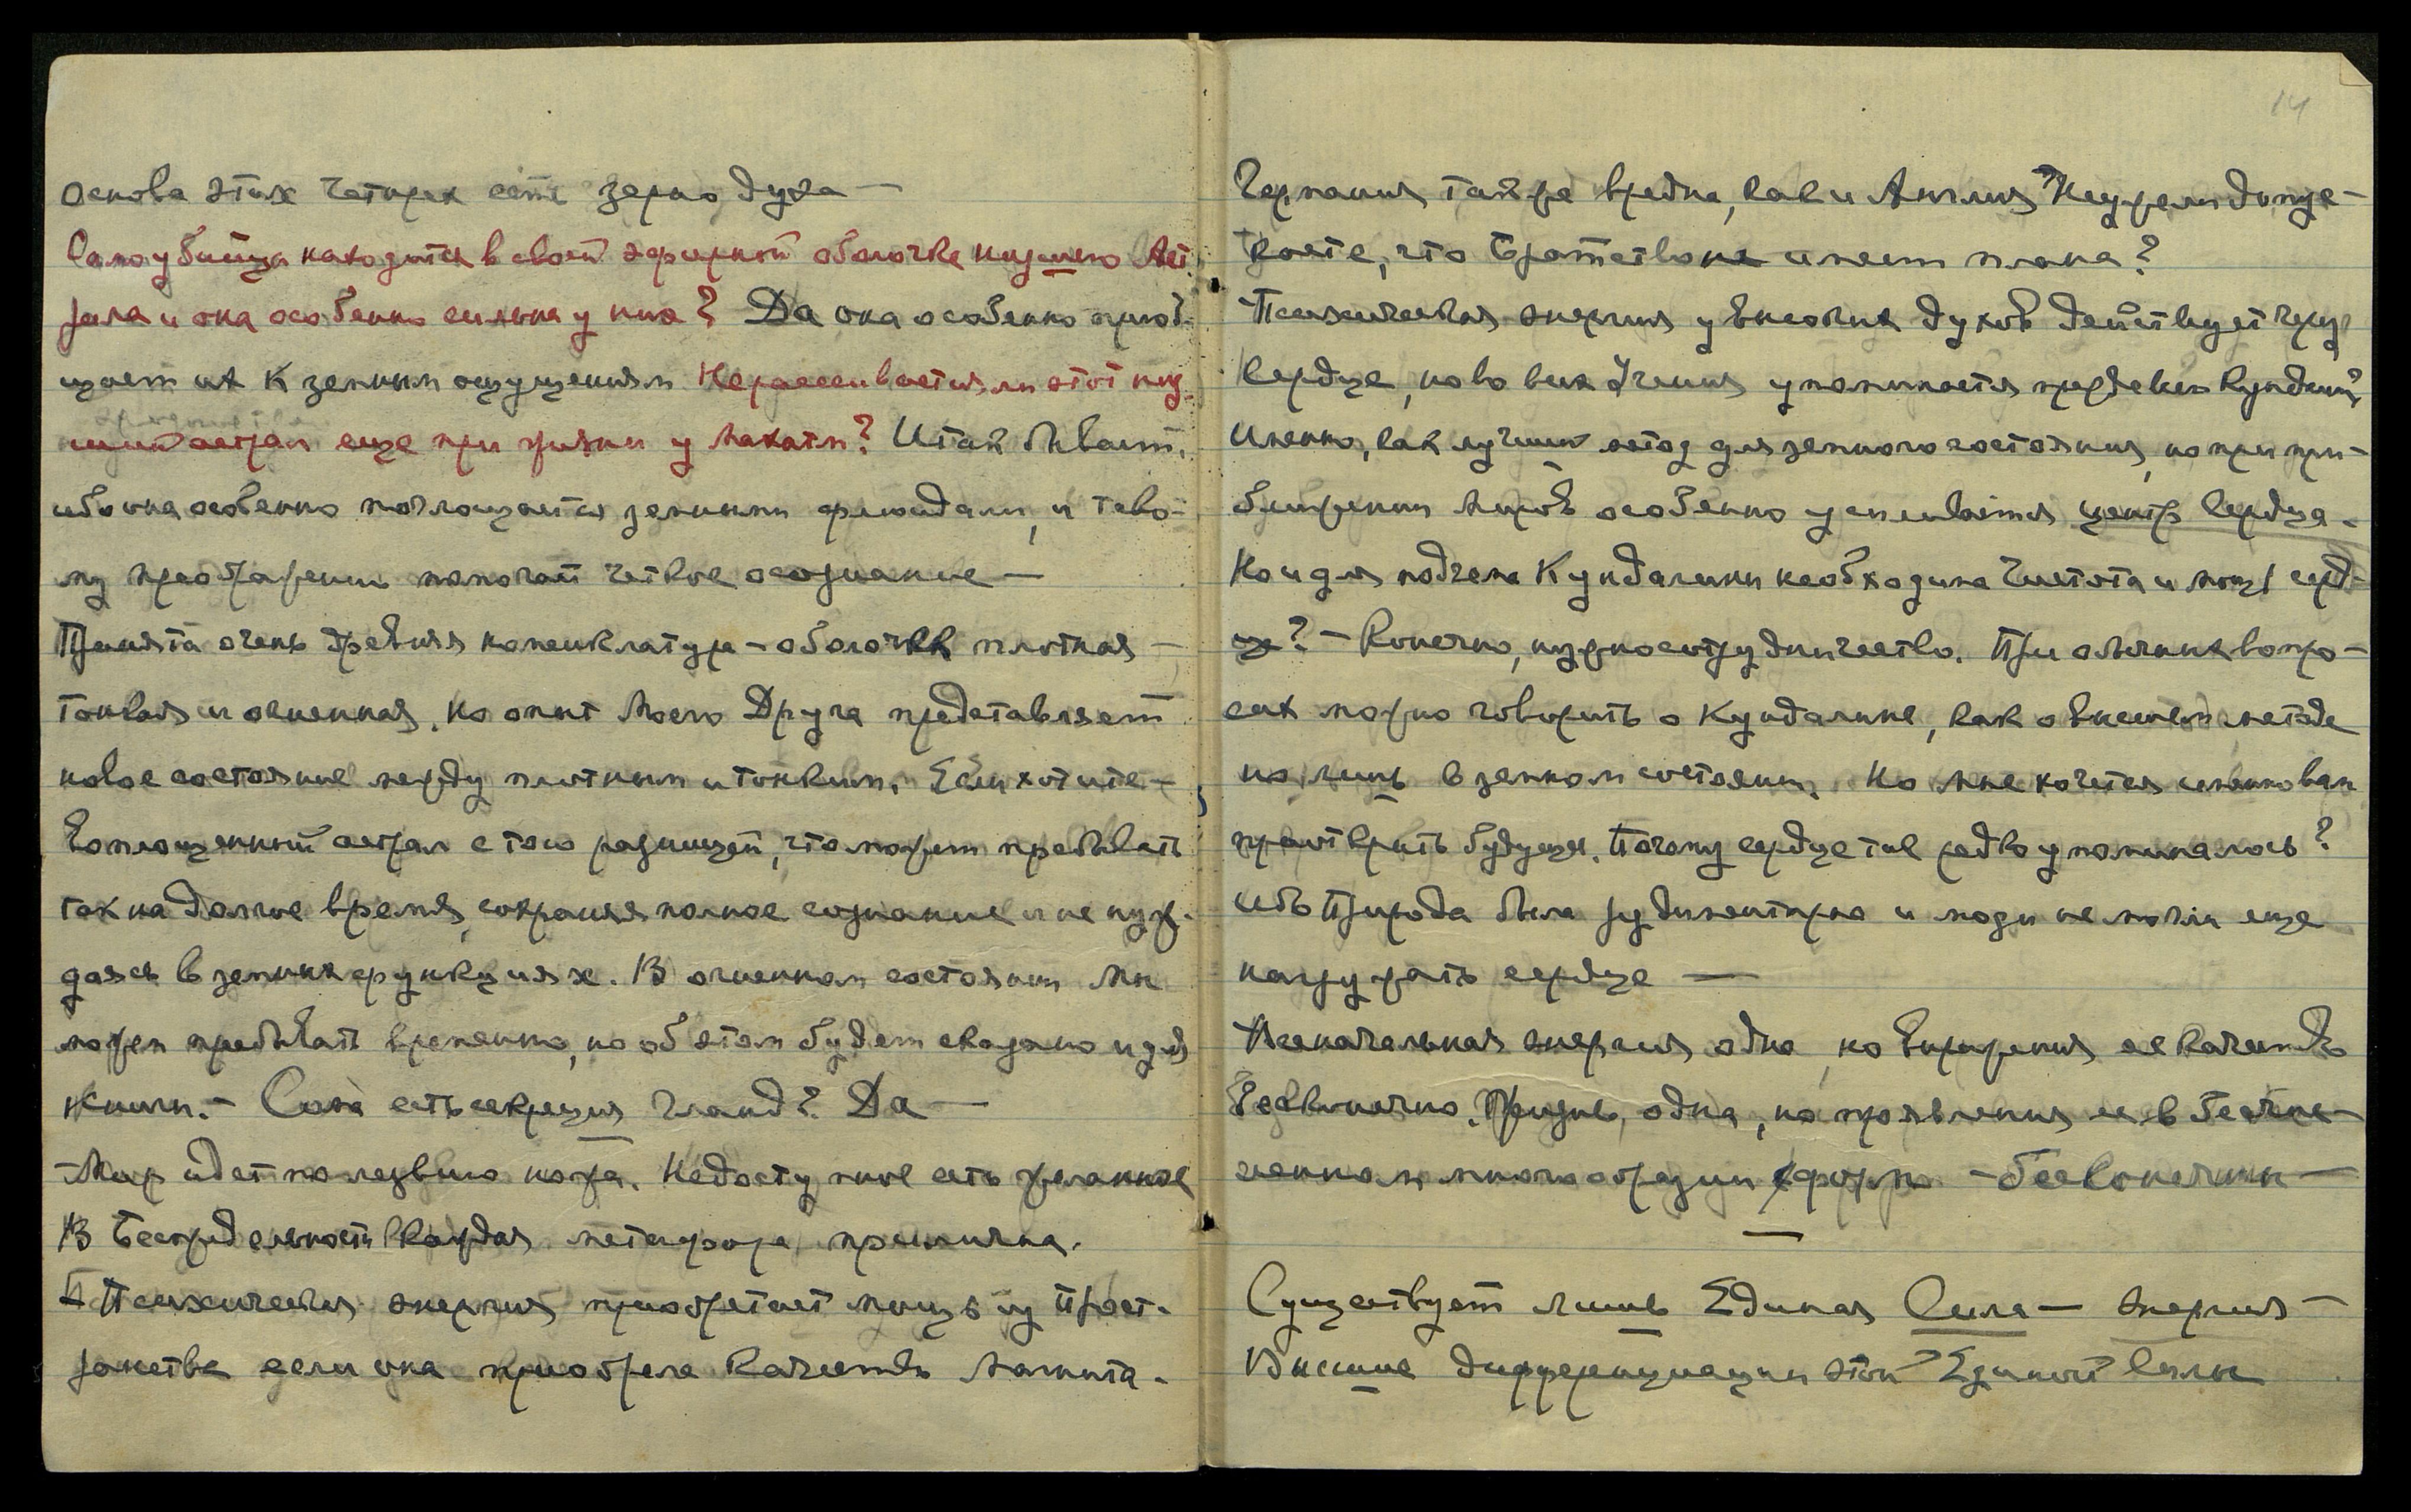 основа этих четырех есть зерно духа —
Самоубийцы находятся в своей эфирной оболочке низшего Аст
рала и она особенно сильна у них? Да она особенно приоб-
щает их к земным ощущениям Не рассеивается ли этот низ-
ший астрал еще при жизни у Махатм? И так бывает,
ибо она особенно поглощается земными флюидами, и тако-
му преображению помогает четкое осознание —
Принята очень древняя номенклатура — оболочка плотная —
тонкая и огненная, но опыт Моего Друга представляет
новое состояние между плотным и тонким. Если хотите —
воплощенный астрал с тою разницей, что может пребывать
так на долгое время, сохраняя полное сознание и не нуж-
даясь в земных функциях. В огненном состоянии Мы
можем пребывать временно, но об этом будет сказано и для
книги. — Сома есть секреция гланд? Да —
Мир идет по лезвию ножа. Недоступное есть желанное
В Беспредельности каждая метафора прилична.
Психическая энергия приобретает мощь из Прост-
ранства если она приобрела качество магнита.
14
Германия также вредна, как и Англия? Неужели допус-
каете, что Братство не имеет плана?
Психическая энергия у высоких духов действует через
сердце, но во всех Учениях упоминается прежде всего Кундалини?
Именно, как лучший метод для земного состояния, но при при-
ближении Миров особенно усиливается центр сердца.
Но и для подъема Кундалини необходима чистота и мощь серд-
ца? — Конечно, нужно сотрудничество. При обычных вопро-
сах можно говорить о Кундалини, как о высшем методе
но лишь в земном состоянии. Но мне хочется именно вам
приоткрыть будущее. Почему сердце так редко упоминалось?
ибо Природа была рудиментарна и люди не могли еще
нагружать сердце —
Всеначальная энергия одна, но выражения ее качеств
бесконечно. Жизнь, одна, но проявления ее в бесчис-
ленном многообразии форм — бесконечны —
Существует лишь Единая Сила — энергия —
Высшие дифференциации этой Единой Силы